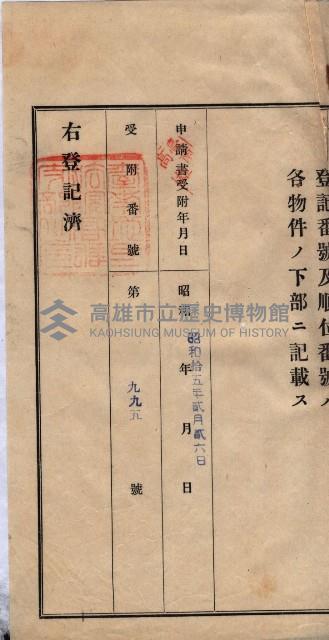 登記番號及順位番號ハ
各物件ノ下部ニ記載ス
申請書受附年月日 昭和 年 月 日
昭和拾五年貳月貳六日
受附番號 第 九九五 號
右登記濟
高雄市立歷史博物館
KAOHSIUNG MUSEUM OF HISTORY